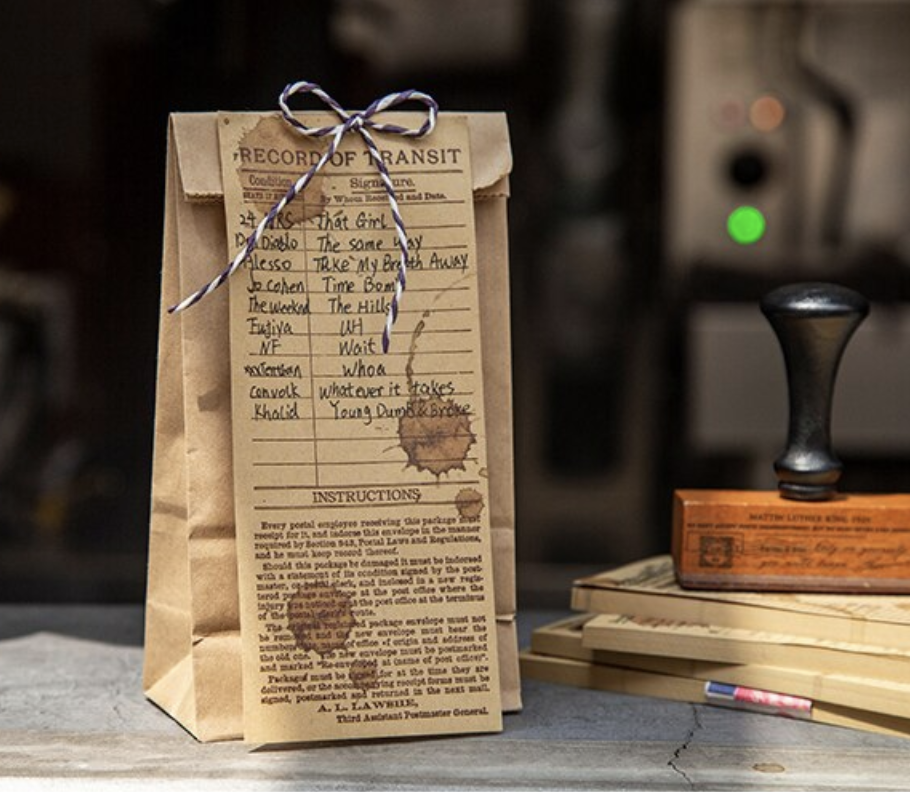 RECORD OF TRANSIT
Condition Signature.
By Whom Received and Date.
24 HRS That Girl
Diablo The same way
Alesso Take My Breath Away
Jo Cohen Time Bomb
The Weeknd The Hills
Fujiya UH
NF Wait
Whoa
Convolk Whatever it takes
Khalid Young Dumb & Broke
INSTRUCTIONS
Every postal employee receiving this package must
receipt for it, and indorse this envelope in the manner
required by Section 943, Postal Laws and Regulations,
and he must keep record thereof.
Should this package be damaged it must be indorsed
with a statement of its condition signed by the post-
master, or postal clerk, and inclosed in a new regis-
tered package envelope at the post office where the
injury was noticed or at the post office at the terminus
of the postal clerk's route.
The original registered package envelope must not
be removed and the new envelope must bear the
numbers, name of office of origin and address of
the old one. The new envelope must be postmarked
and marked "Re-enveloped at (name of post office)".
Packages must be signed for at the time they are
delivered, or the accompanying receipt forms must be
signed, postmarked and returned in the next mail.
A. L. LAWSHE,
Third Assistant Postmaster General.
MATTIN LUTHER KING